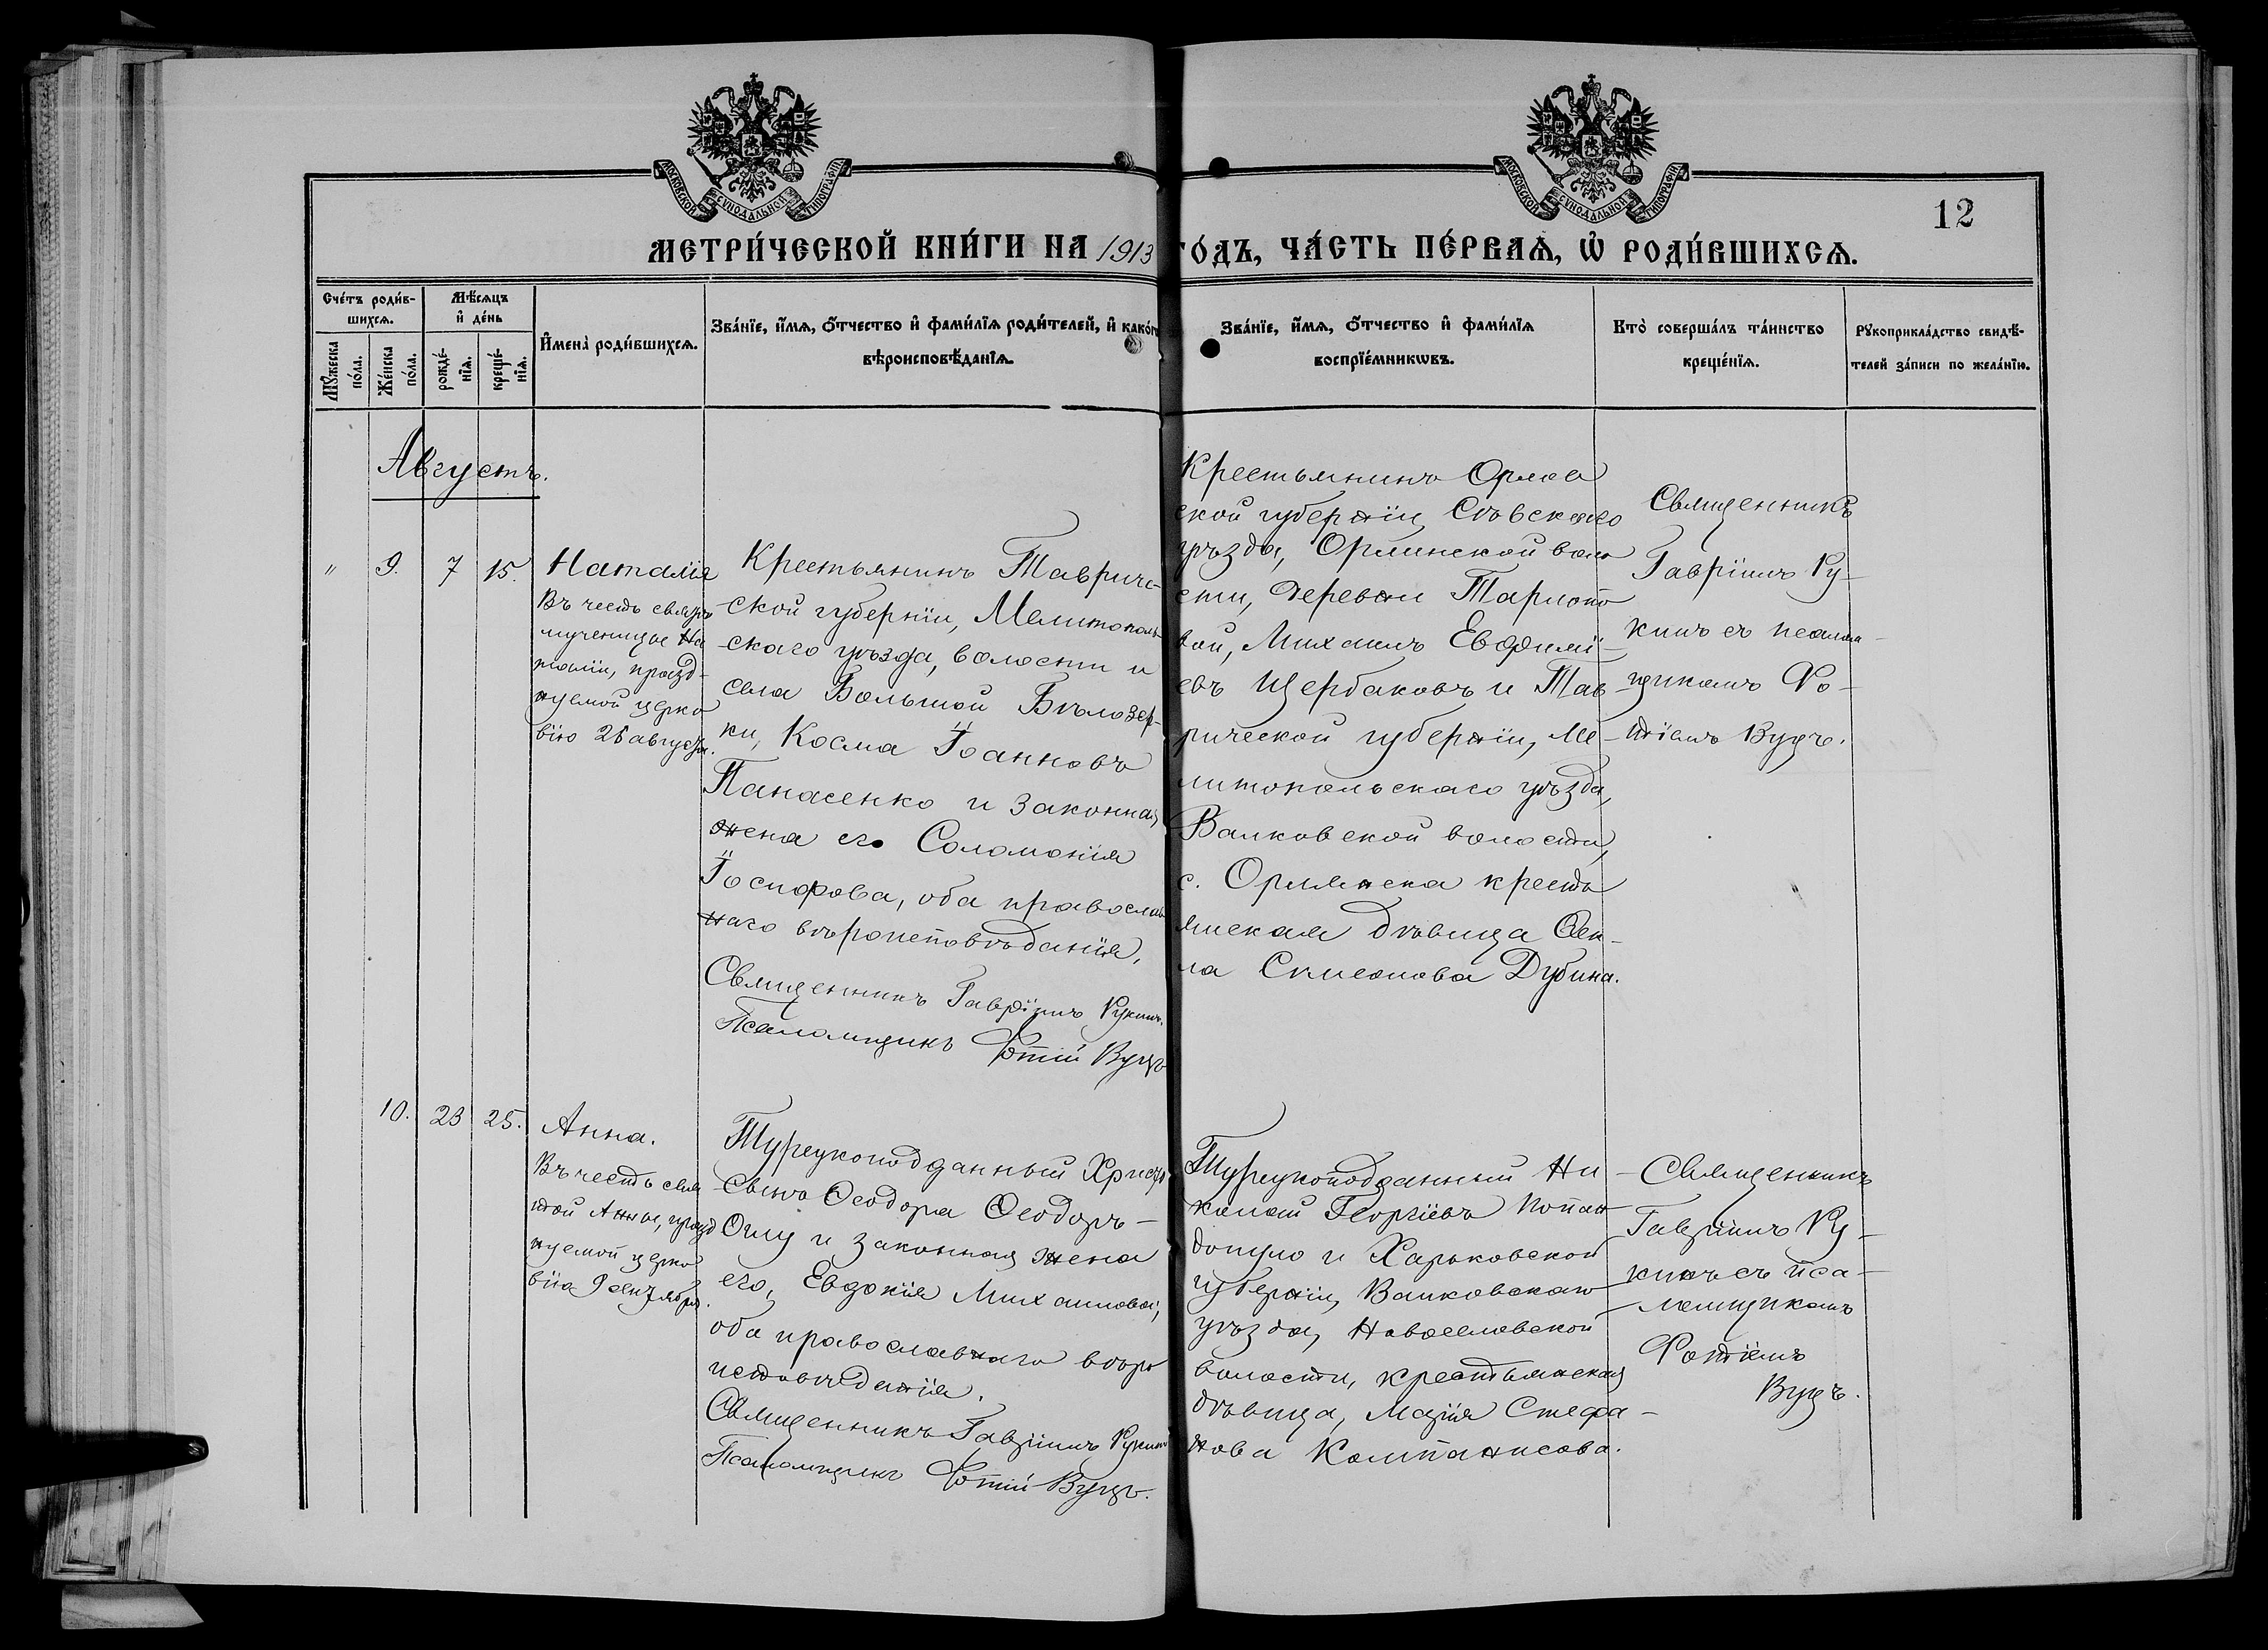 МОСКОВСКОЙ СѴНОДАЛЬНОЙ ТИПОГРАФІИ
МОСКОВСКОЙ СѴНОДАЛЬНОЙ ТИПОГРАФІИ
12
МЕТРИ́ЧЕСКОЙ КНИ́ГИ НА 1913 ГО́ДЪ, ЧА́СТЬ ПЕ́РВАѦ, Ѡ РОДИ́ВШИХСѦ.
Сче́тъ роди́в-
шихсѧ.
Мѣ́сѧцъ
и де́нь
Мꙋ́жеска
по́ла.
Же́нска
по́ла.
рожде́-
нїѧ.
креще́-
нїѧ.
И҆мена̀ роди́вшихсѧ.
Зва́нїе, и҆́мѧ, ѻ҆́тчество и҆ фами́лїѧ роди́телей, и҆ како́гѡ
вѣроисповѣ́данїѧ.
Зва́нїе, и҆́мѧ, ѻ҆́тчество и҆ фами́лїѧ
воспрїе́мникѡвъ.
Кто̀ соверша́лъ та́инство
креще́нїѧ.
Рꙋкоприкла́дство свидѣ́-
телей за́писи по жела́нїю.
Августъ.
" 9. 7 15. Наталія
Въ честь свят.
мученицы На
таліи, празд-
нуемой церко
вію 26 августа.
Крестьянинъ Тавриче-
ской губерніи, Мелитополь-
скаго уѣзда, волости и
села Большой Бѣлозер-
ки, Косма Іоанновъ
Панасенко и законная
жена его Соломонія
Іосифова, оба православ
наго вѣроисповѣданія.
Священникъ Гавріилъ Рукинъ.
Псаломщикъ Фотій Вуцъ
Крестьянинъ Орлов
ской губерніи, Сѣвскаго
уѣзда, Орлинской воло
сти, деревни
вой, Михаилъ Евфимі-
евъ Щербаковъ и Тав-
рической губерніи, Ме-
литопольскаго уѣзда,
Валковской волости,
с. Орлянска кресть
янская дѣвица Ѳек-
ла Симеонова Дубина.
Священникъ
Гавріилъ Ру-
кинъ съ псалом-
щикомъ Фо-
тіемъ Вуцъ.
10. 23 25. Анна.
Въ честь свя
той Анны, празд
нуемой церко
вію 9 сентября.
Турецкоподданный Христо
сынъ Ѳеодора Ѳеодоръ-
Оглу и законная жена
его, Евдокія Михаилова,
оба православнаго вѣро
исповѣданія.
Священникъ Гавріилъ Рукинъ
Псаломщикъ Фотій Вуцъ.
Турецкоподданный Ни-
колай Георгіевъ Попан
допуло и Харьковской
губерніи, Валковскаго
уѣзда, Новоселовской
волости, крестьянская
дѣвица, Марія Стефа-
нова Компанисова.
Священникъ
Гавріилъ Ру-
кинъ съ пса-
ломщикомъ
Фотіемъ
Вуцъ.